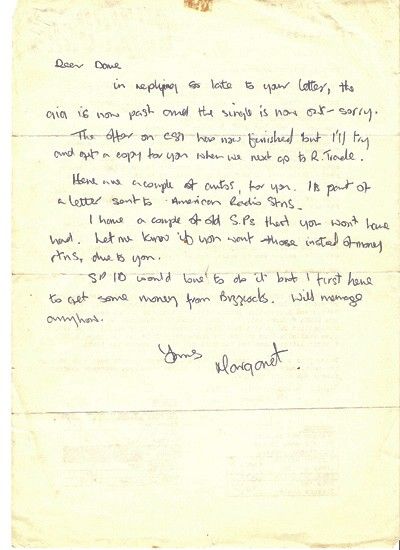 Dear Dave
in replying so late to your letter, the
gig is now past and the single is now out - sorry.
The offer on CS1 has now finished but I'll try
and get a copy for you when we next go to R. Trade.
Here are a couple of autos, for you. Its part of
a letter sent to American Radio Stns.
I have a couple of old S.Ps that you won't have
had. Let me know if you want those instead of money
rtns, due to you.
SP 10 would love to do it but I first have
to get some money from Bizzcocks. Will manage
anyhow.
Yours
Margaret.